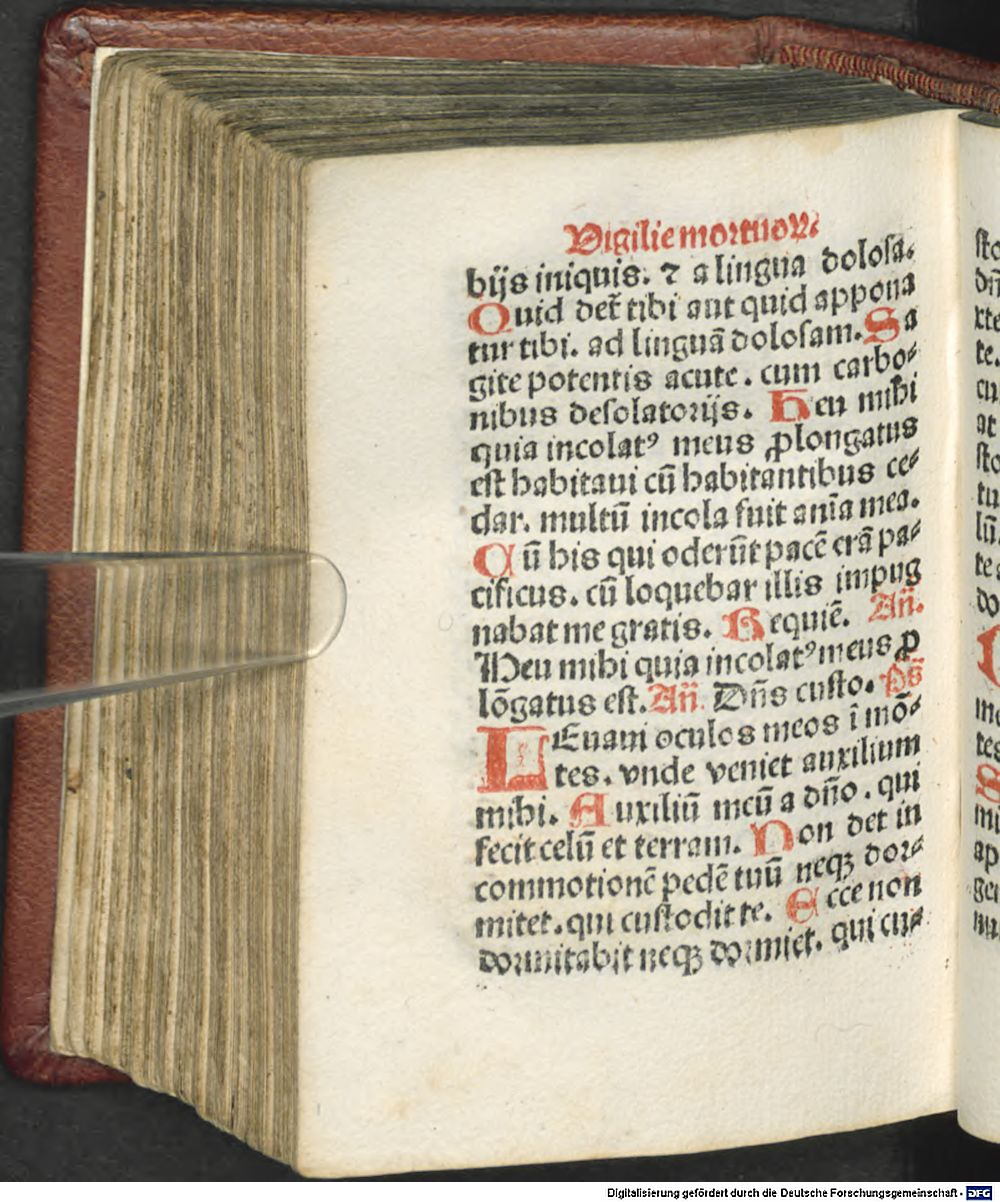 Vigilie mortuoꝝ
bijs iniquis. ⁊ a lingua dolosa.
Quid det᷑ tibi aut quid appona
tur tibi. ad linguã dolosam. Sa
gite potentis acute. cum carbo⸗
nibus desolatorijs. Heu mihi
quia incolatꝰ meus ꝓlongatus
est habitaui cũ habitantibus ce⸗
dar. multũ incola fuit anĩa mea.
Cũ his qui oderũt pacẽ erã pa⸗
cificus. cũ loquebar illis impug
nabat me gratis. Requiẽ. Añ.
Heu mihi quia incolatꝰ meus ꝓ
lõgatus est. Añ. Dñs custo. Ps̃
LEuaui oculos meos ĩ mõ⸗
tes. vnde veniet auxilium
mihi. Auxiliũ meũ a dño. qui
fecit celũ et terram. Non det in
commotionẽ pedẽ tuũ neqꝫ dor⸗
mitet. qui custodit te. Ecce non
dormitabit neqꝫ dormiet. qui cu⸗
Digitalisierung gefördert durch die Deutsche Forschungsgemeinschaft - DFG